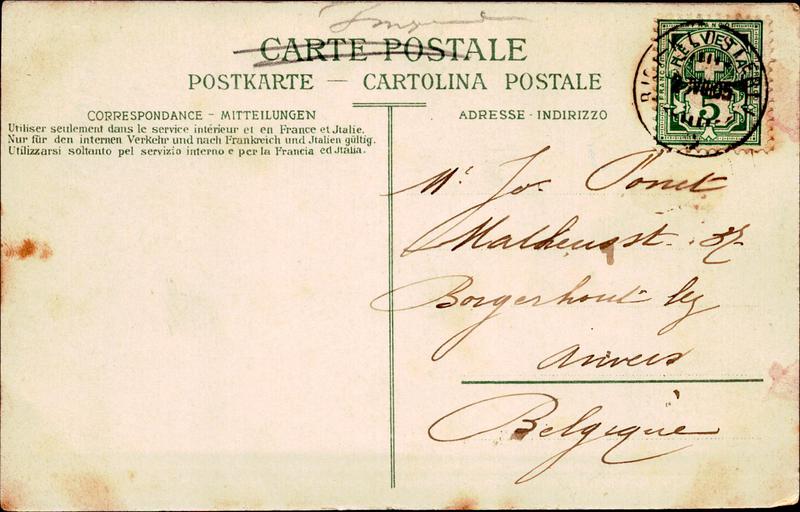 CARTE POSTALE
POSTKARTE — CARTOLINA POSTALE
CORRESPONDANCE - MITTEILUNGEN
Utiliser seulement dans le service intérieur et en France et Jtalie.
Nur für den internen Verkehr und nach Frankreich und Jtalien gültig.
Utilizzarsi soltanto pel servizio interno e per la Francia ed Jtalia.
ADRESSE - INDIRIZZO
HELVETIA
5
Mr Jos. Ponet
Matheusst.
Borgerhout lez
Anvers
Belgique